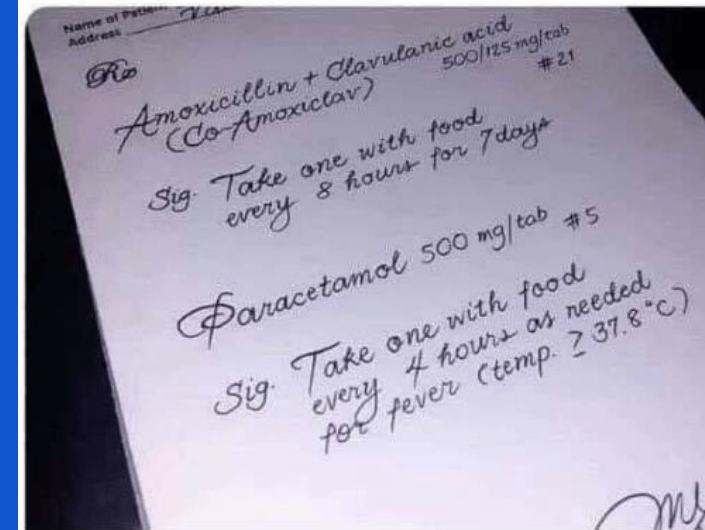 Name of Patient
Address
Rx
Amoxicillin + Clavulanic acid
(Co-Amoxiclav)
500/125 mg/tab
#21
Sig. Take one with food
every 8 hours for 7 days
Paracetamol 500 mg/tab #5
Sig. Take one with food
every 4 hours as needed
for fever (temp. ≥ 37.8°C)